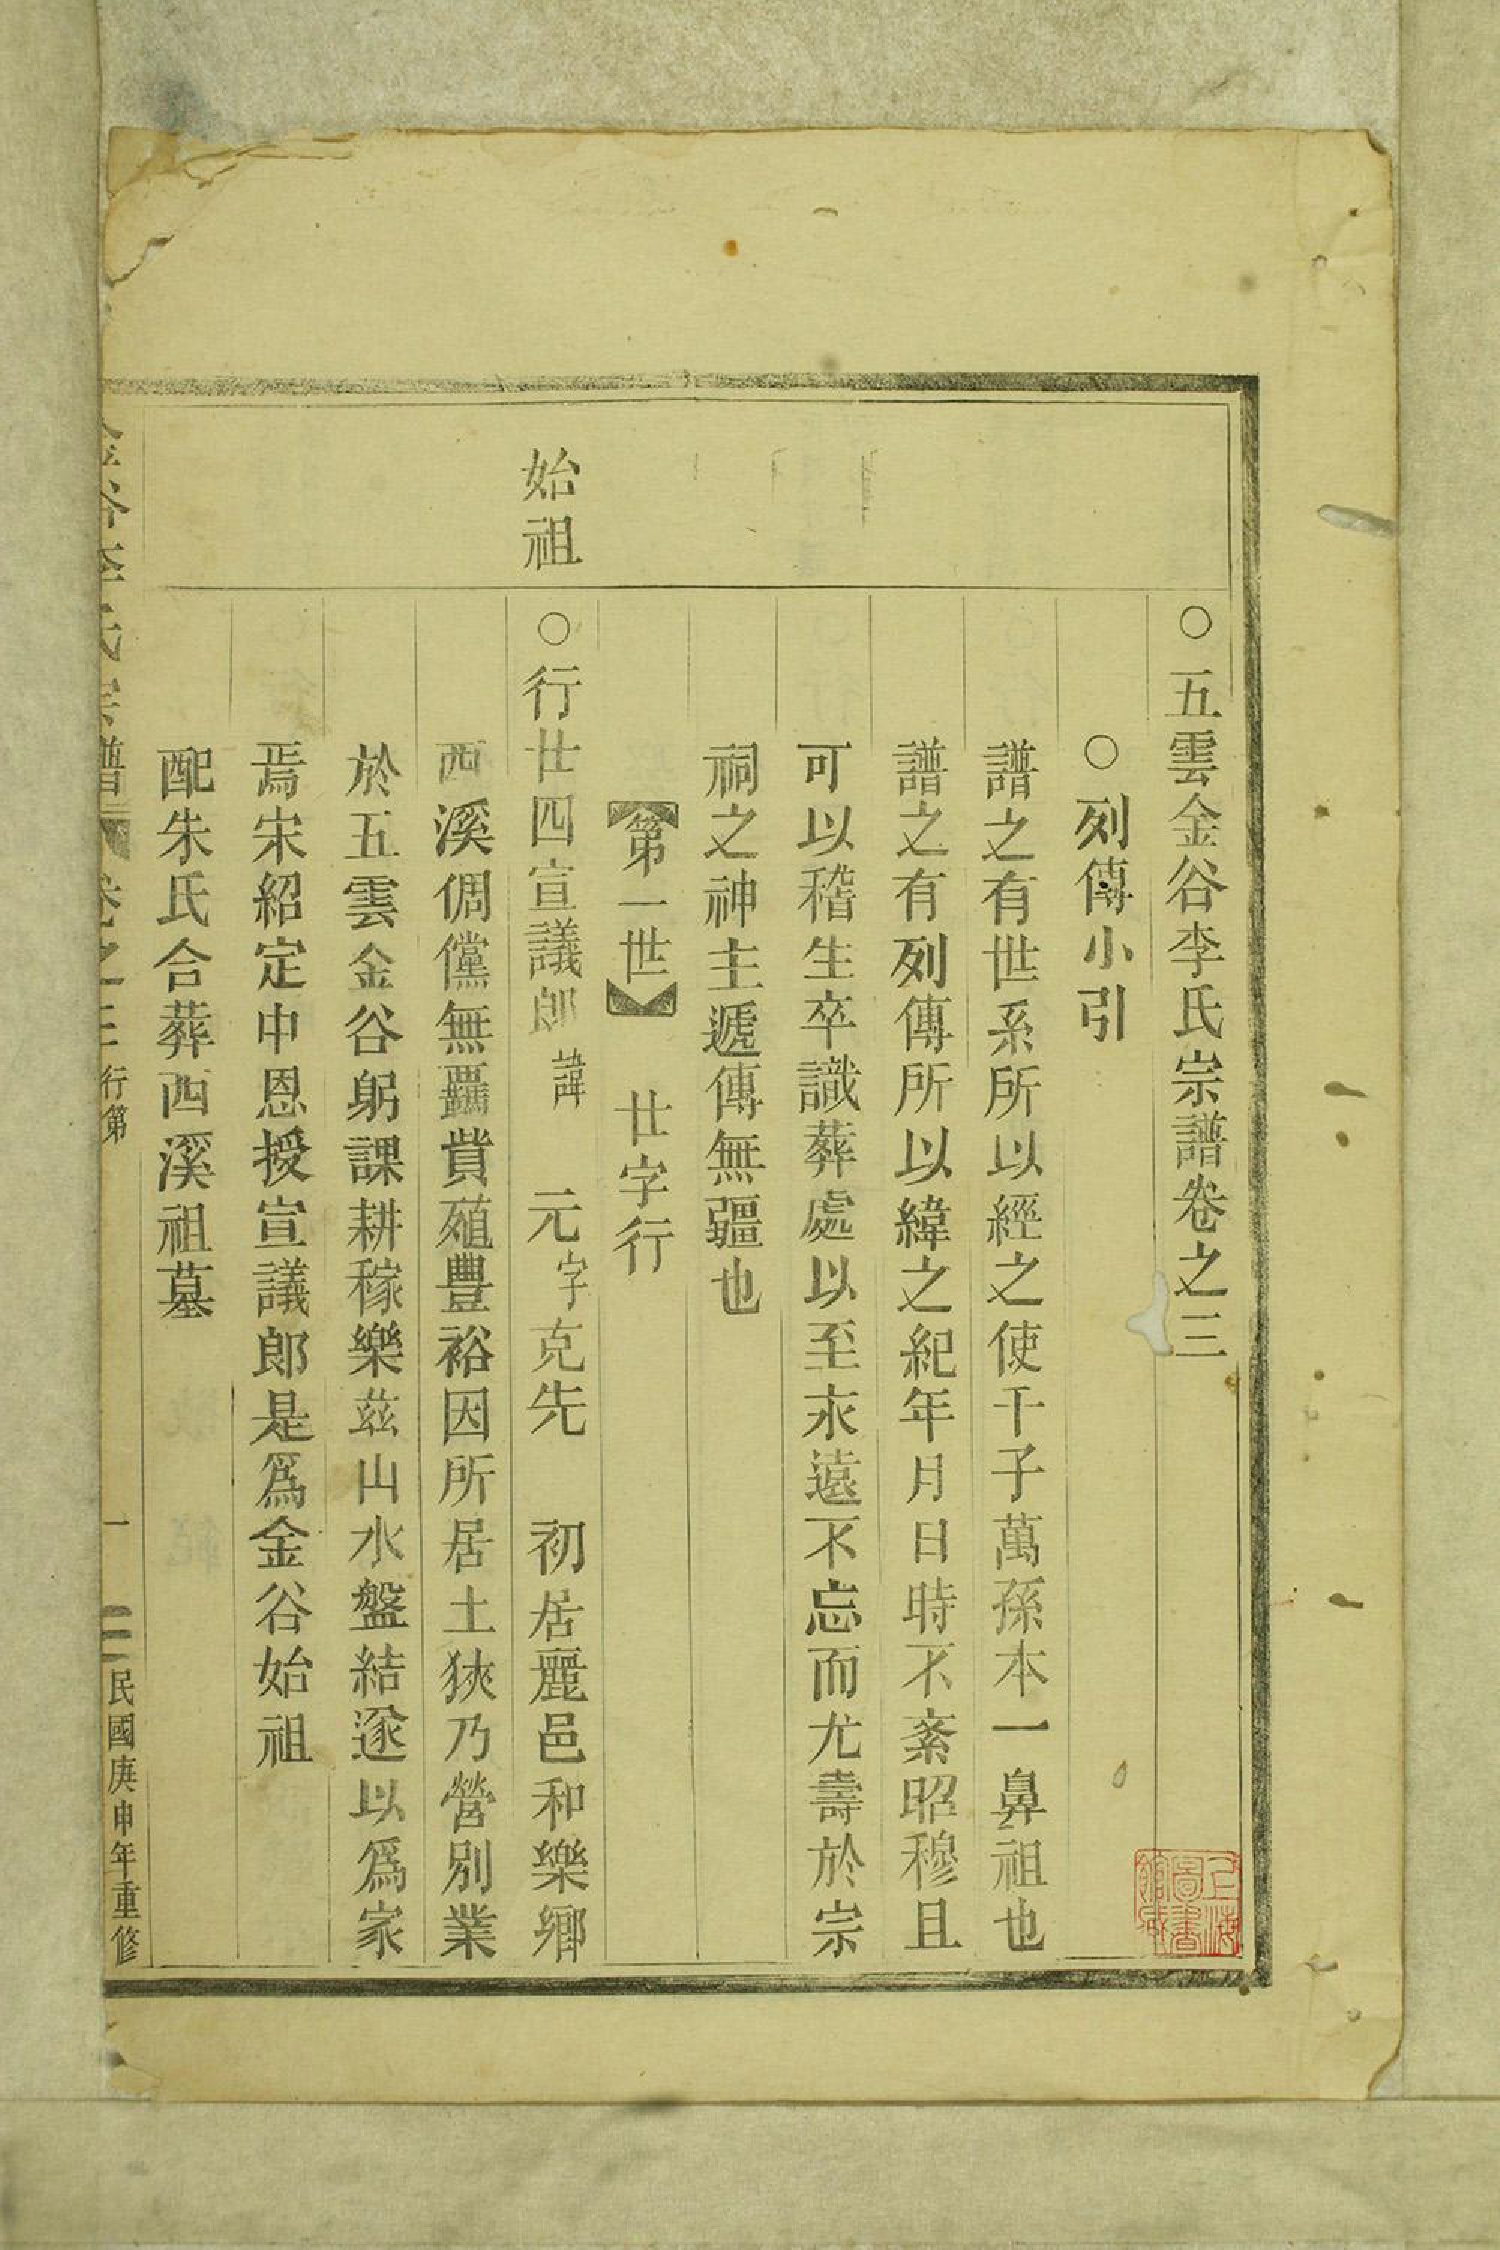 ○五雲金谷李氏宗譜卷之三
○列傳小引
譜之有世系所以經之使千子萬孫本一鼻祖也
譜之有列傳所以緯之紀年月日時不紊昭穆且
可以稽生卒識葬處以至永遠不忘而尤壽於宗
祠之神主遞傳無疆也
【第一世】 廿字行
始祖
○行廿四宣議郎 諱 元 字 克先 初居麗邑和樂鄉
西溪倜儻無羈貲殖豐裕因所居土狹乃營別業
於五雲金谷躬課耕稼樂茲山水盤結遂以爲家
焉宋紹定中恩授宣議郎是爲金谷始祖
配朱氏合葬西溪祖墓
金谷李氏宗譜 卷之三 行第 一 民國庚申年重修
上海圖書館藏